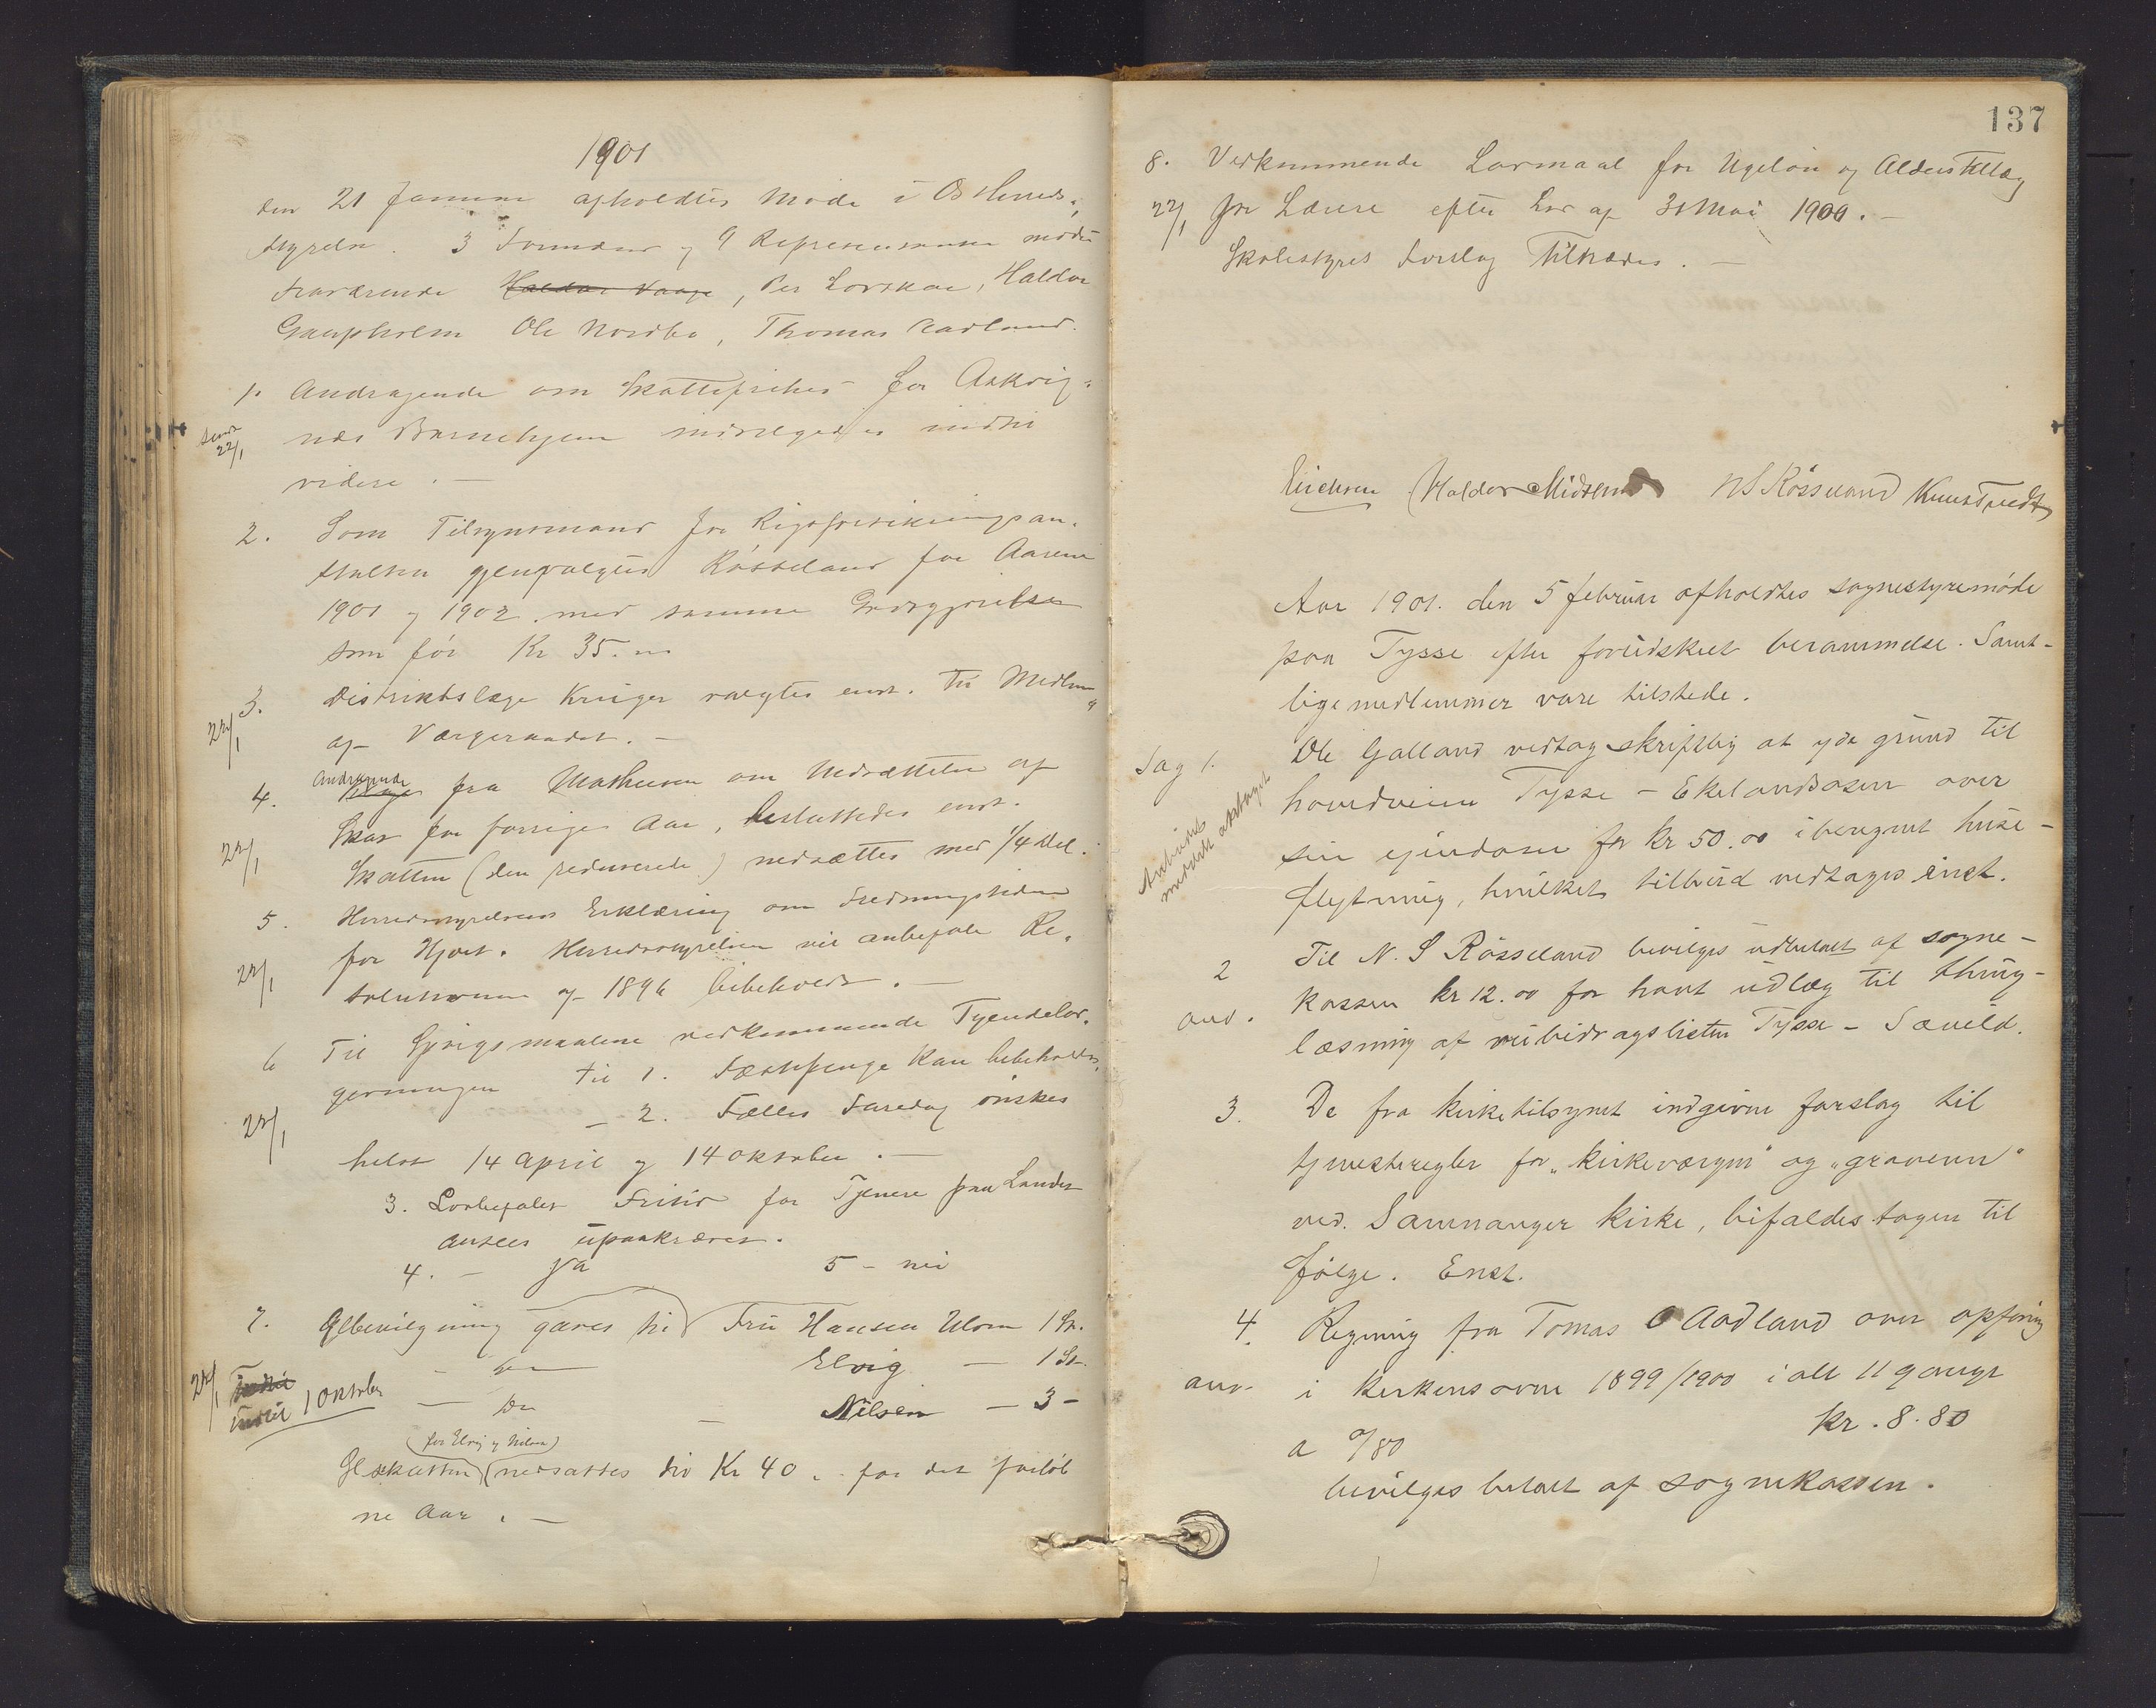 1901
den 21 Januar afholdtes Møde i Os Herreds-
styrelse. 3 Formænd og 9 Repræsentanter mødte
Fraværende Haldor Vaage, Per Lovskar, Haldor
Gaupholm Ole Nordbø, Thomas Aadland.
1. Andragende om Skattefrihed for Aakvig-
næs Barnehjem indvilgedes indtil
sendt 22/1
videre. —
2. Som Tilsynsmand for Rigsforsikringsan-
stalten gjenvalgtes Røsseland for Aarene
1901 og 1902 med samme Godtgjørelse
som før Kr 35.00
3. Distriktslæge Krüger valgtes enst. til Medlem
22/1
af Værgeraadet. —
4. Andragende fra Mathiesen om Nedsættelse af
Skat for forrige Aar, besluttedes enst.
22/1
Skatten (den reducerede) nedsættes med 1/4 Del.
5. Herredsstyrelsens Erklæring om Fredningstiden
for Hjort. Herredsstyrelsen vil anbefale Re-
22/1
solutionen af 1896 bibeholdt. —
6 Til Spørgsmaalene vedkommende Tyendelov-
givningen til 1. Fæstepenge kan bibeholdes,
— 2. Fælles Faredag ønskes
22/1
helst 14 April og 14 Oktober. —
3. Lovbefalet Fritid for Tjenere paa Landet
ansees upaakrævet.
4. — ja 5 – nei
7. Ølbevilgning gaves til Fru Hansen Ulven 1 Sk.
22/1 indtil 1 Oktober
— Do Elvig — 1 Sk.
— Do — Nilsen — 3 –
(for Elvig og Nilsen)
Ølskatten nedsattes til Kr 40 .. for det forløb
ne Aar. —
137
8. Vedkommende Lovmaal for Ugeløn og Alderstillæg
22/1 for Lærere efter Lov af 31 Mai 1900. —
Skolestyrets Forslag Tiltrædes. —
Erichsen Haldor Midtsund NS Røsseland Knut Tvedt
Aar 1901. den 5 februar afholdtes sognestyremøde
paa Tysse efter forudskeet berammelse. Samt-
lige medlemmer vare tilstede.
Sag 1. Ole Galland vedtog skriftlig at yde grund til
hovedveien Tysse – Ekelandsosen over
sin eiendom for kr 50.00 iberegnet huse-
flytning, hvilket tilbud vedtages enst.
Anbudet
meddelt antaget
2 Til N. S Røsseland bevilges udbetalt af sogne-
kassen kr 12.00 for havt udlæg til thing-
anv.
læsning af veibidragslisten Tysse – Sæveld.
3. De fra kirketilsynet indgivne forslag til
tjenesteregler for „kirkeværgen" og „graveren"
ved. Samnanger kirke, bifaldes tagen til
følge. Enst.
4. Regning fra Tomas O Aadland over opfyring
anv. i kirkens ovne 1899/1900 i alt 11 gange
a 0/80 kr. 8.80
bevilges betalt af sognekassen.